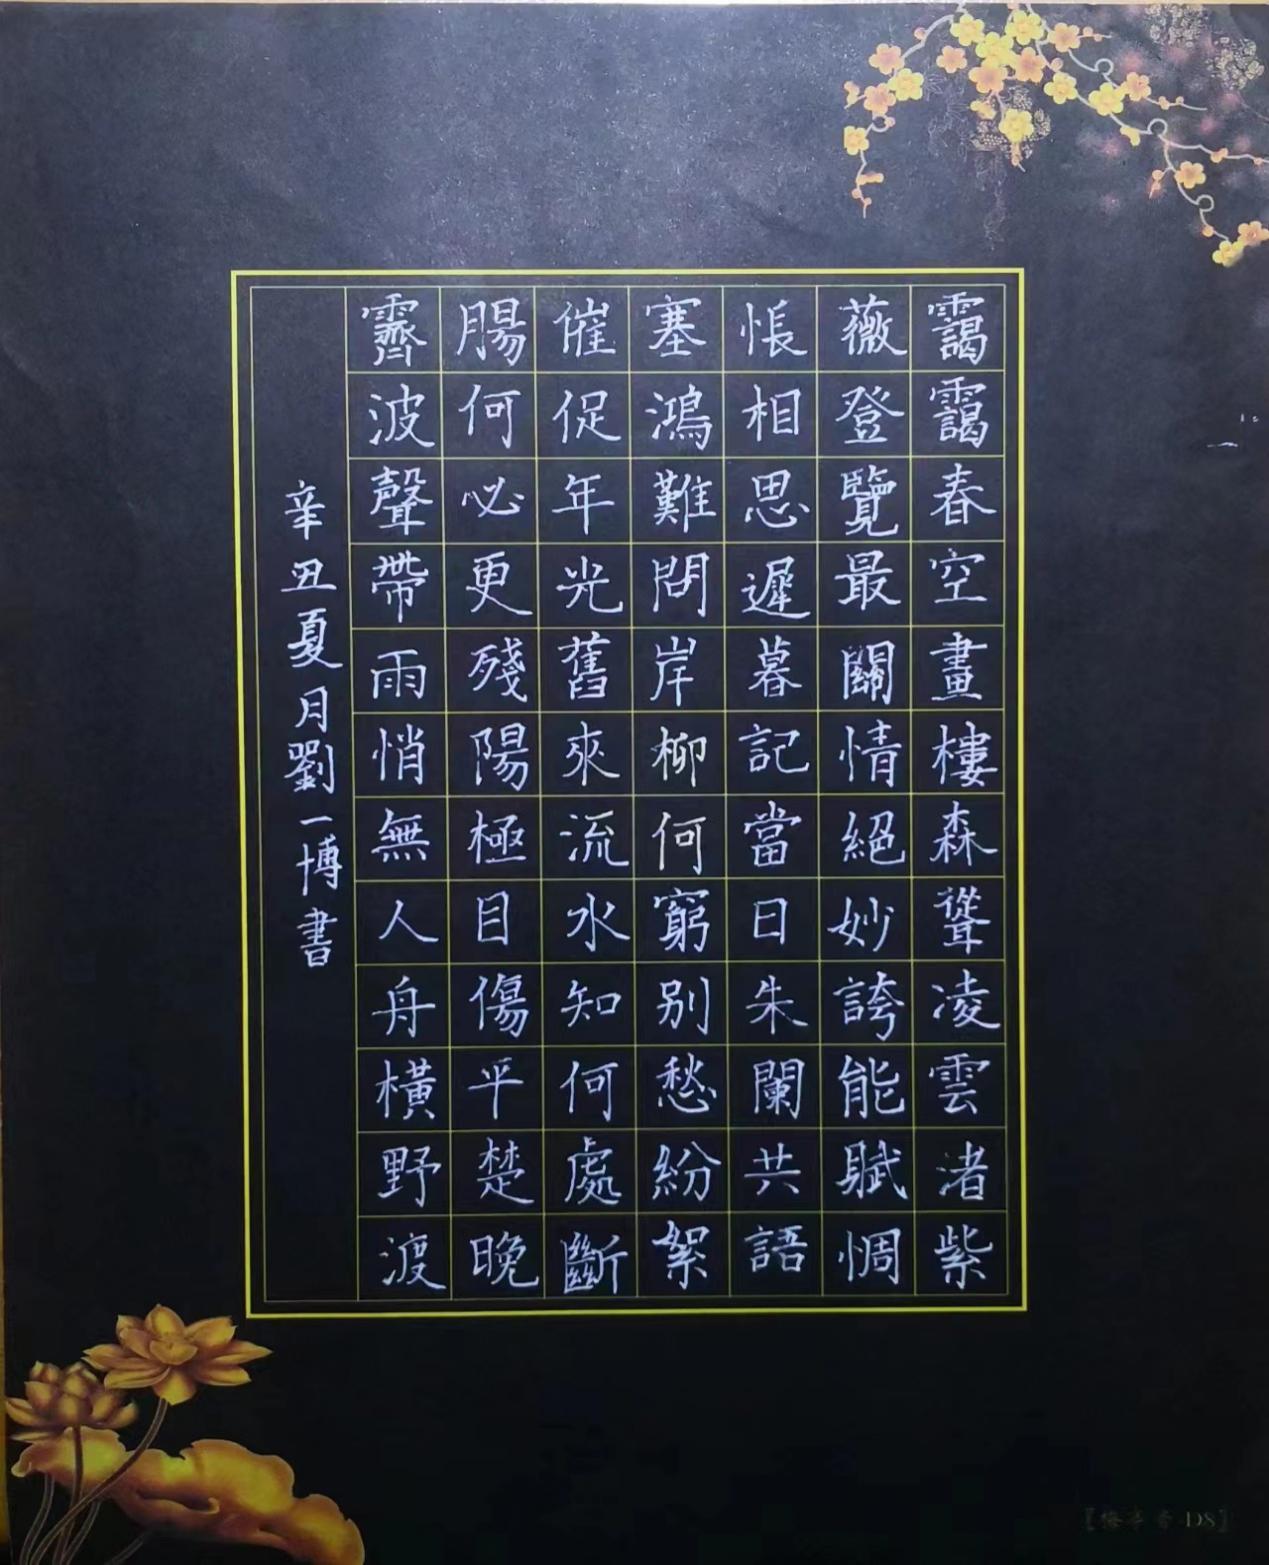 靄靄春空畫樓森聳凌雲渚紫
薇登覽最關情絕妙誇能賦惆
悵相思遲暮記當日朱闌共語
塞鴻難問岸柳何窮別愁紛絮
催促年光舊來流水知何處斷
腸何必更殘陽極目傷平楚晚
霽波聲帶雨悄無人舟橫野渡
辛丑夏月劉一博書